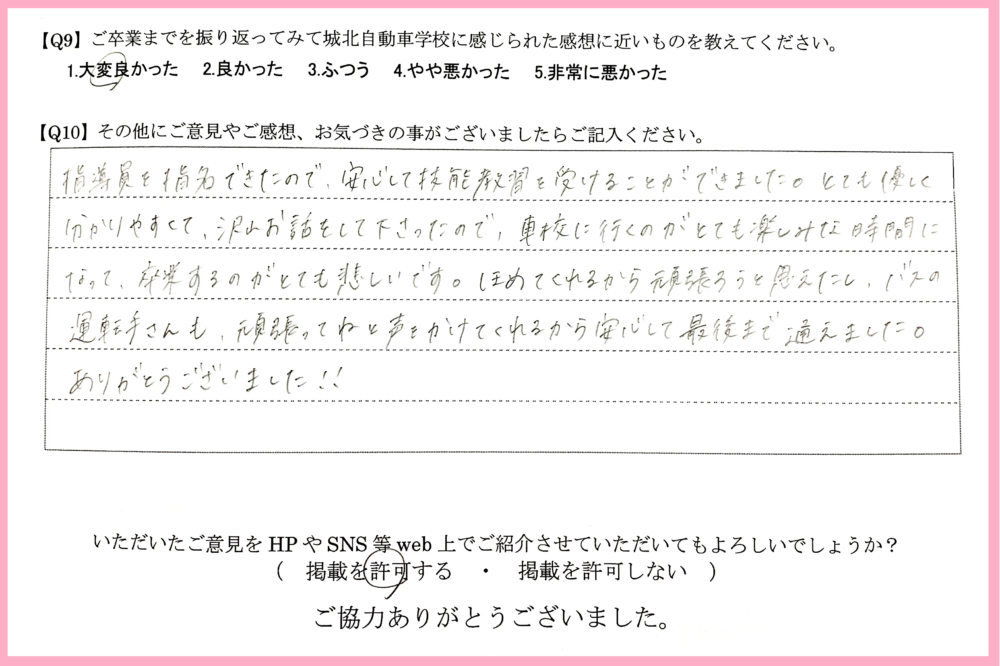 【Q9】ご卒業までを振り返ってみて城北自動車学校に感じられた感想に近いものを教えてください。
1.大変良かった 2.良かった 3.ふつう 4.やや悪かった 5.非常に悪かった
【Q10】その他にご意見やご感想、お気づきの事がございましたらご記入ください。
指導員を指名できたので、安心して技能教習を受けることができました。とても優しく
分かりやすくて、沢山お話をして下さったので、車校に行くのがとても楽しみな時間に
なって、卒業するのがとても悲しいです。ほめてくれるから頑張ろうと思えたし、バスの
運転手さんも、頑張ってねと声をかけてくれるから安心して最後まで通えました。
ありがとうございました!!
いただいたご意見をHPやSNS等web上でご紹介させていただいてもよろしいでしょうか?
( 掲載を許可する ・ 掲載を許可しない )
ご協力ありがとうございました。